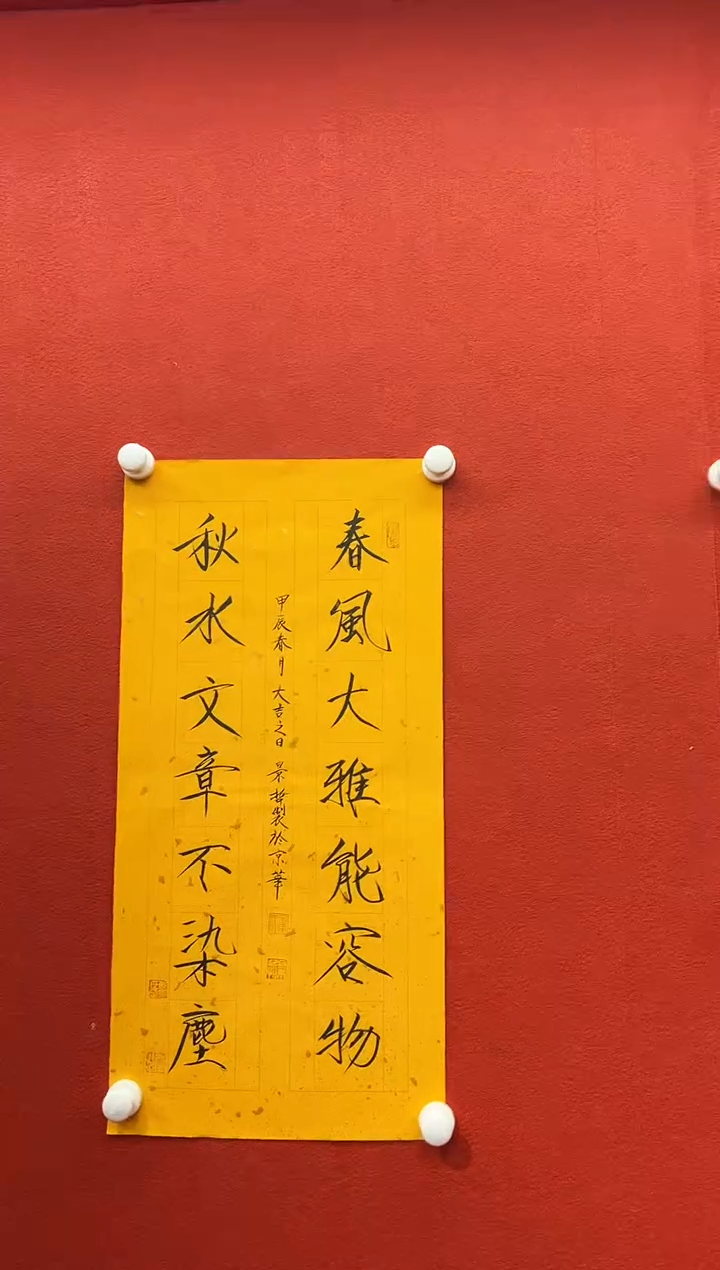 春風大雅能容物
甲辰春月大吉之日景哲製於京華
秋水文章不染塵